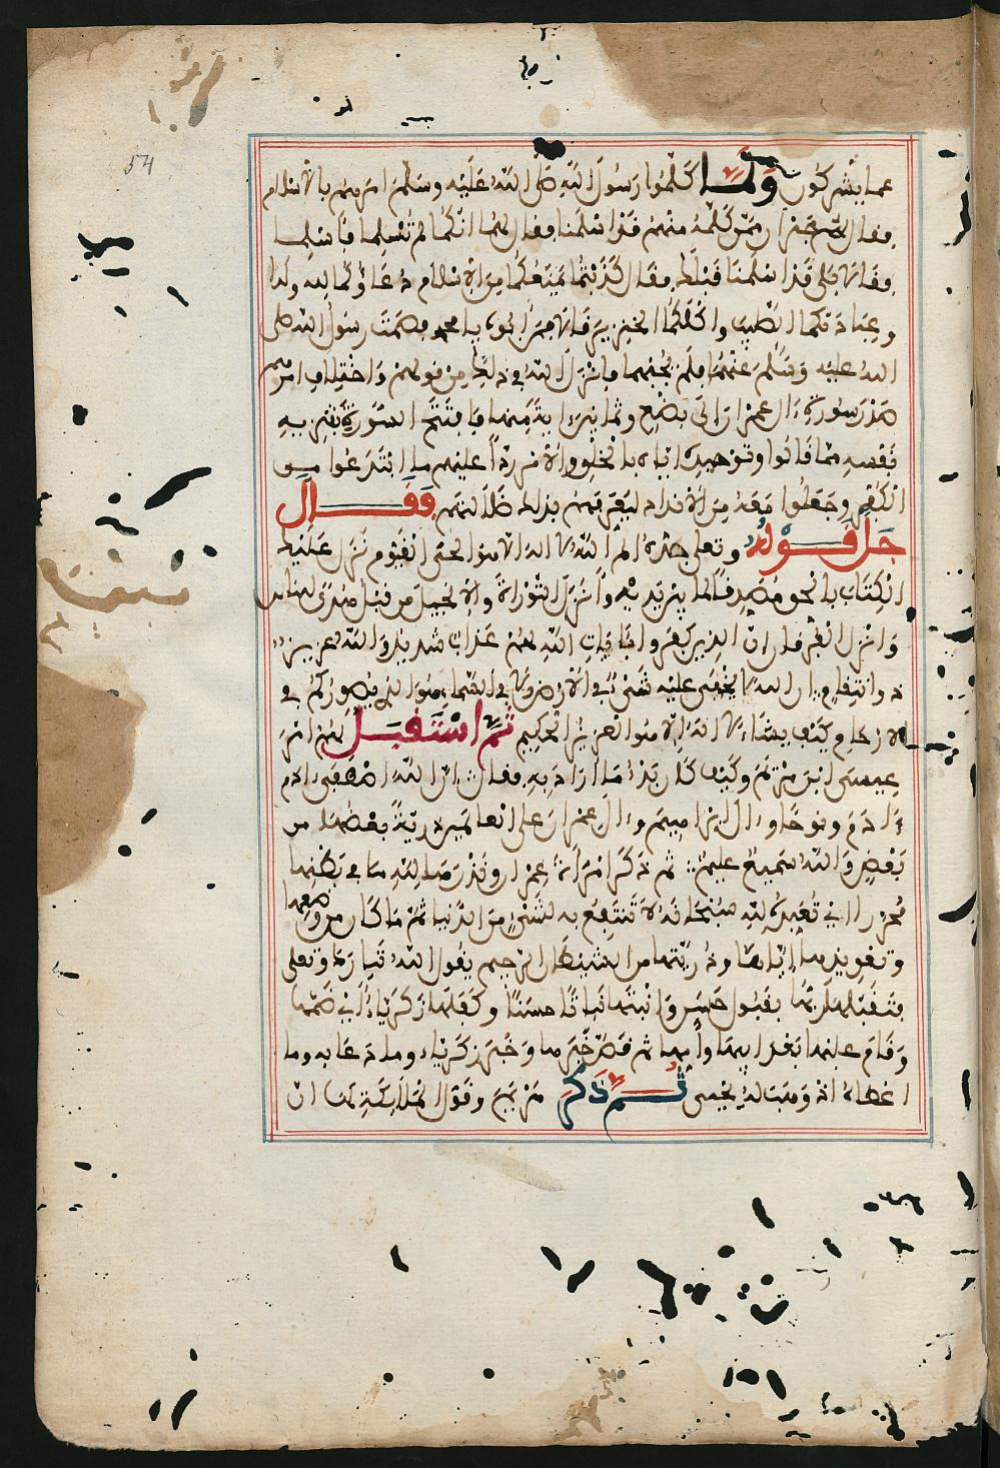 54
عما يشركون ولما كلموا رسول الله صلى الله عليه وسلم امرهم بالاسلام
فقال من كلمه منهم قد اسلمنا فقال لهما انكما لم تسلما فاسلما
فقالا بلى قد اسلمنا قبلك فقال كذبتما يمنعكما من الاسلام دعاؤكما لله ولدا
وعبادتكما الصليب واكلكما الخنزير قالا فمن ابوه يا محمد فصمت رسول الله صلى
الله عليه وسلم عنهما فلم يجبهما فانزل الله في ذلك من قولهم واختلاف امرهم
صدر سورة ءال عمران الى بضع وثمانين اية منها فافتتح السورة بتنزيه
نفسه مما قالوا وتوحيده اياه بالخلق والامر ردا عليهم ما ابتدعوا من
الكفر وجعلوا معه من الانداد ليعرفهم بذلك ضلالتهم فقال
جل قوله وتعلى جده الم الله لا اله الا هو الحي القيوم نزل عليك
الكتاب بالحق مصدقا لما بين يديه وانزل التوراة والانجيل من قبل هدى للناس
وانزل الفرقان ان الذين كفروا بئايات الله لهم عذاب شديد والله عزيز
ذو انتقام ان الله لا يخفى عليه شيء في الارض ولا في السماء هو الذي يصوركم في
الارحام كيف يشاء لا اله الا هو العزيز الحكيم ثم استقبل لهم امر
عيسى ابن مريم وكيف كان بدء ما اراد به فقال ان الله اصطفى ءادم
ونوحا وءال ابراهيم وءال عمران على العالمين ذرية بعضها من
بعض والله سميع عليم ثم ذكر امراة عمران ونذرها لله ما في بطنها
محررا اي تعبده لله سبحانه لا تنتفع به لشيء من الدنيا ثم ما كان من وضعها
وتعويذها اياها وذريتها من الشيطان الرجيم يقول الله تبارك وتعلى
فتقبلها ربها بقبول حسن وانبتها نباتا حسنا وكفلها زكرياء اي ضمها
وقام عليها بعد ابيها وامها ثم قص خبرها وخبر زكرياء وما دعا به وما
اعطاه اذ وهب له يحيى ثم ذكر مريم وقول الملائكة لها ان